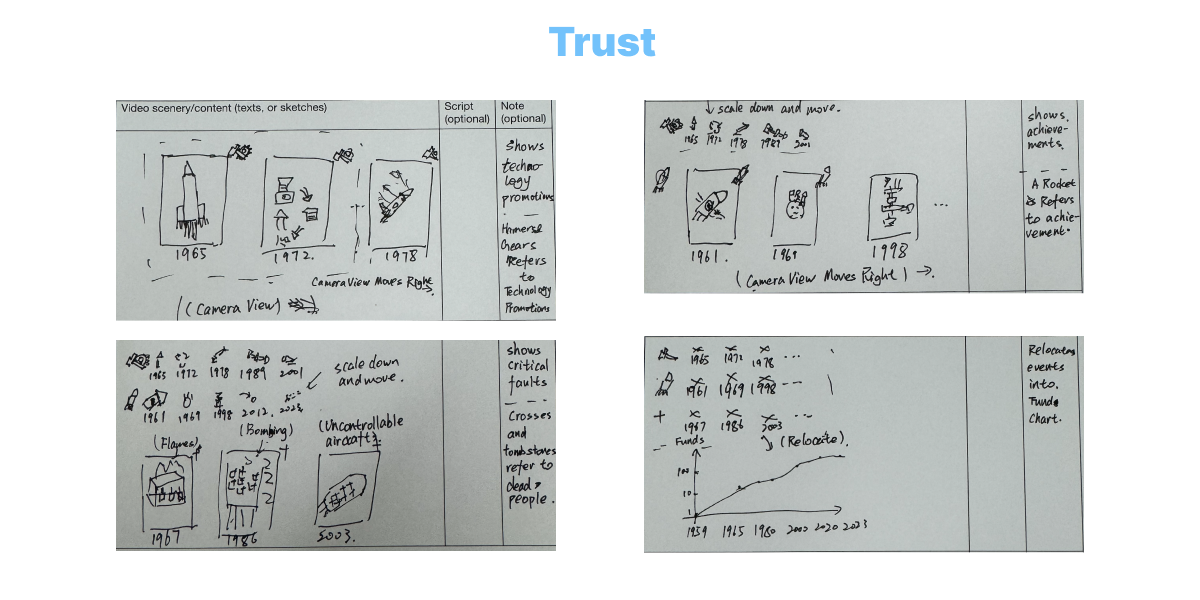 Trust
Video scenery/content (texts, or sketches)
Script
(optional)
Note
(optional)
1965
1972.
1978
Camera View Moves Right
(Camera View)
shows
techno-
logy
promotions
Gears
Refers
to
Technology
Promotions
scale down and move.
1965
1972
1978
1989
2001
1961.
1969
1998
...
(Camera View Moves Right)
shows.
achieve-
ments.
A Rocket
Refers
to achie-
vement.
1965
1972
1978
1989
2001
scale down
and move.
1961
1969
1998
2012.
2023
(Flames)
(Bombing)
(Uncontrollable
aircraft)
1967
1986
2003.
shows
critical
faults
Crosses
and
tombstones
refer to
dead
people.
1965
1972
1978
...
1961
1969
1998
1967
1986
2003
...
Funds
(Relocate).
100
10
1
1959
1965
1980
2000
2020
2023
Relocates
events
into.
Funds
Chart.